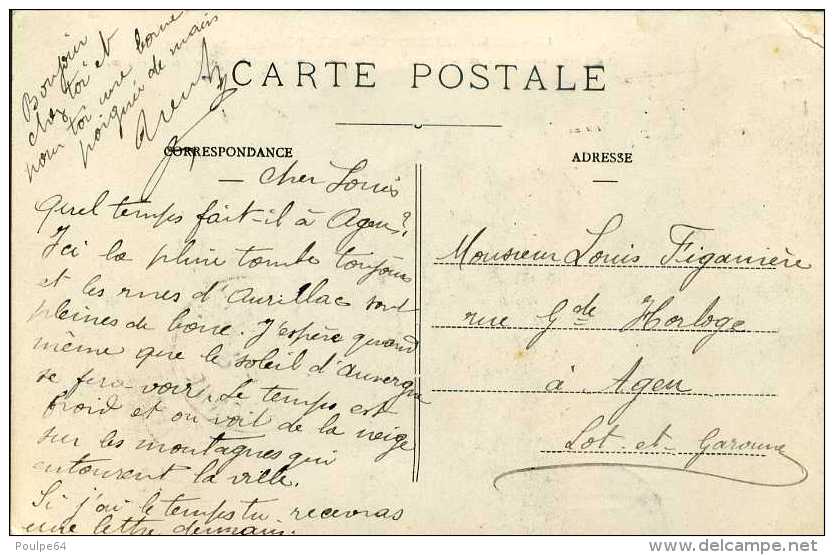 Bonjour
chez toi et
pour toi une bonne
poignée de main
CARTE POSTALE
CORRESPONDANCE
ADRESSE
Cher Louis
Quel temps fait-il à Agen?
Ici la pluie tombe toujours
et les rues d'Aurillac sont
pleines de boue. J'espère quand
même que le soleil d'Auvergne
se fera voir. Le temps est
froid et on voit de la neige
sur les montagnes qui
entourent la ville.
Si j'ai le temps tu recevras
une lettre demain.
Monsieur Louis Figanière
rue Gde Horloge
à Agen
Lot-et-Garonne
Poulpe64
www.delcampe.net